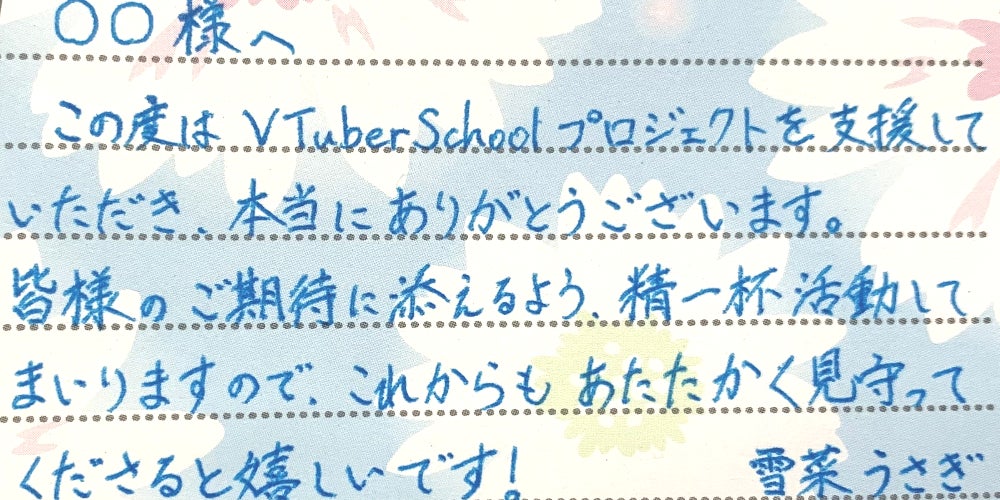 〇〇様へ
この度はVTuberSchoolプロジェクトを支援して
いただき、本当にありがとうございます。
皆様のご期待に添えるよう、精一杯活動して
まいりますので、これからもあたたかく見守って
くださると嬉しいです！ 雪菜うさぎ